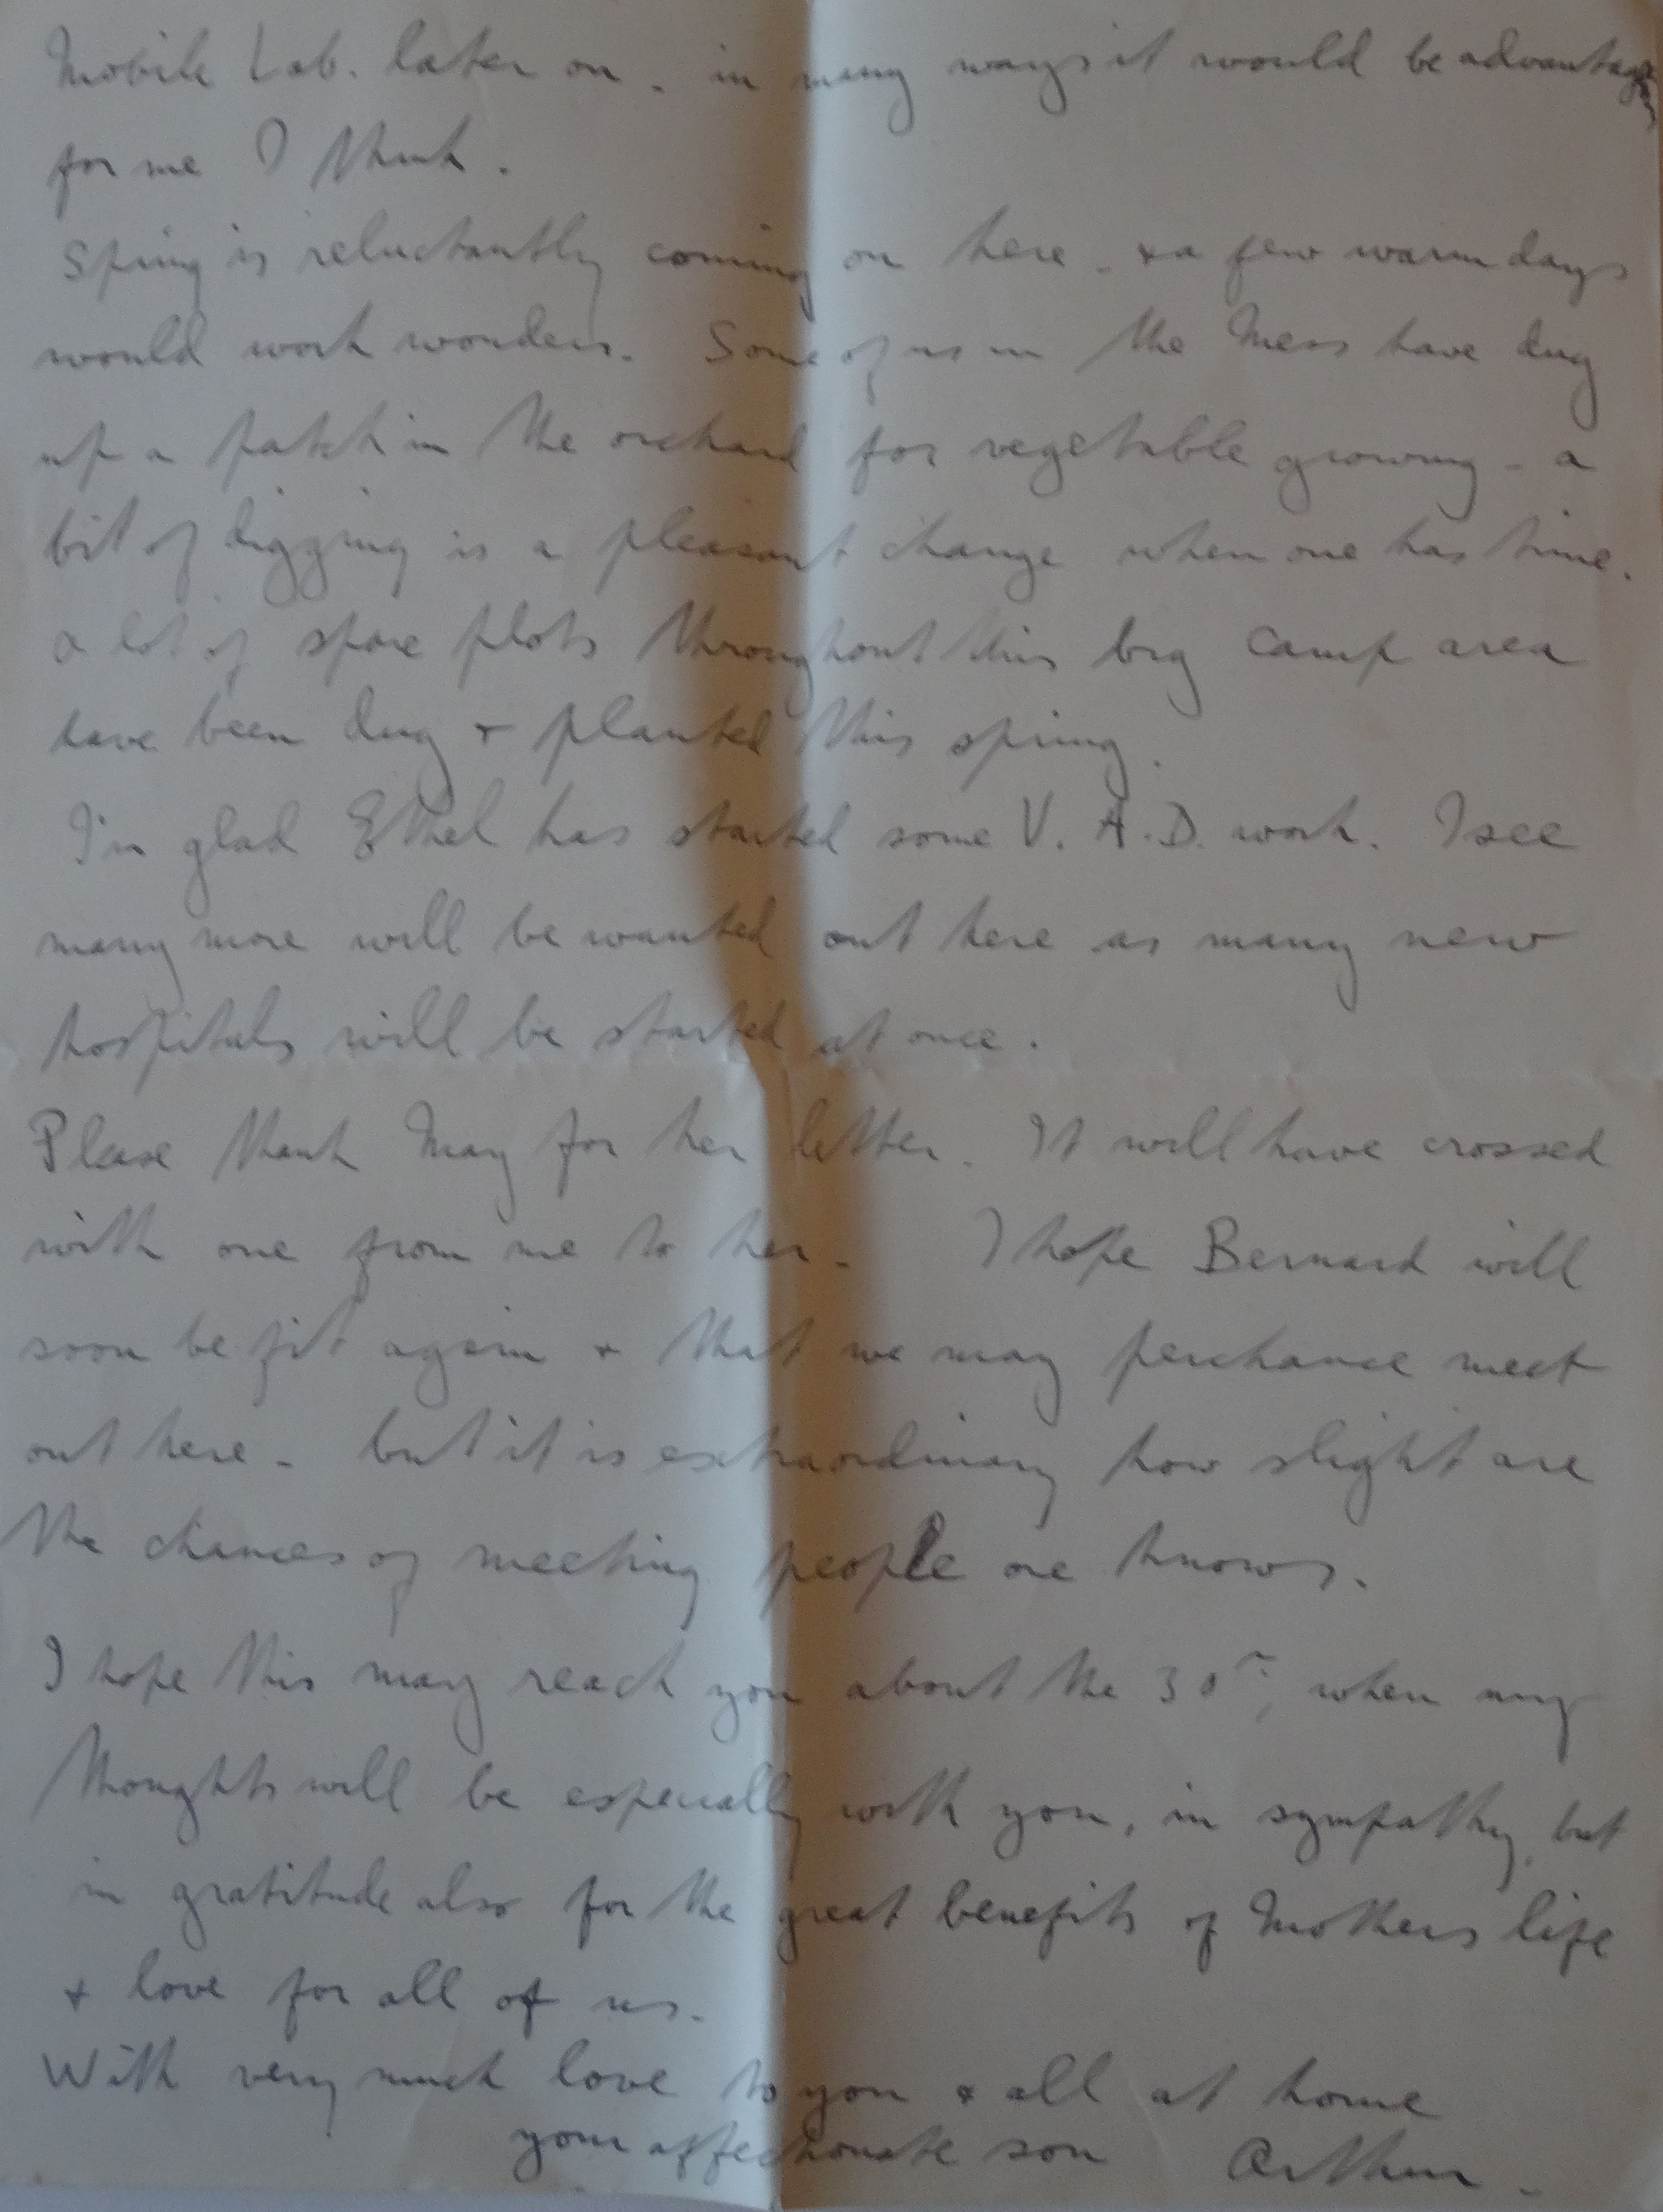 Mobile Lab. later on - in many ways it would be advantageous
for me I think.
Spring is reluctantly coming on here - & a few warm days
would work wonders. Some of us in the Mess have dug
up a patch in the orchard for vegetable growing - a
bit of digging is a pleasant change when one has time.
A lot of spare plots throughout this big camp area
have been dug & planted this spring.
I'm glad Ethel has started some V.A.D. work. I see
many more will be wanted out here as many new
hospitals will be started at once.
Please thank May for her letter. It will have crossed
with one from me to her. I hope Bernard will
soon be fit again & that we may perchance meet
out here - but it is extraordinary how slight are
the chances of meeting people one knows.
I hope this may reach you about the 30th, when my
thoughts will be especially with you, in sympathy, but
in gratitude also for the great benefits of Mothers life
& love for all of us.
With very much love to you & all at home
your affectionate son Arthur -